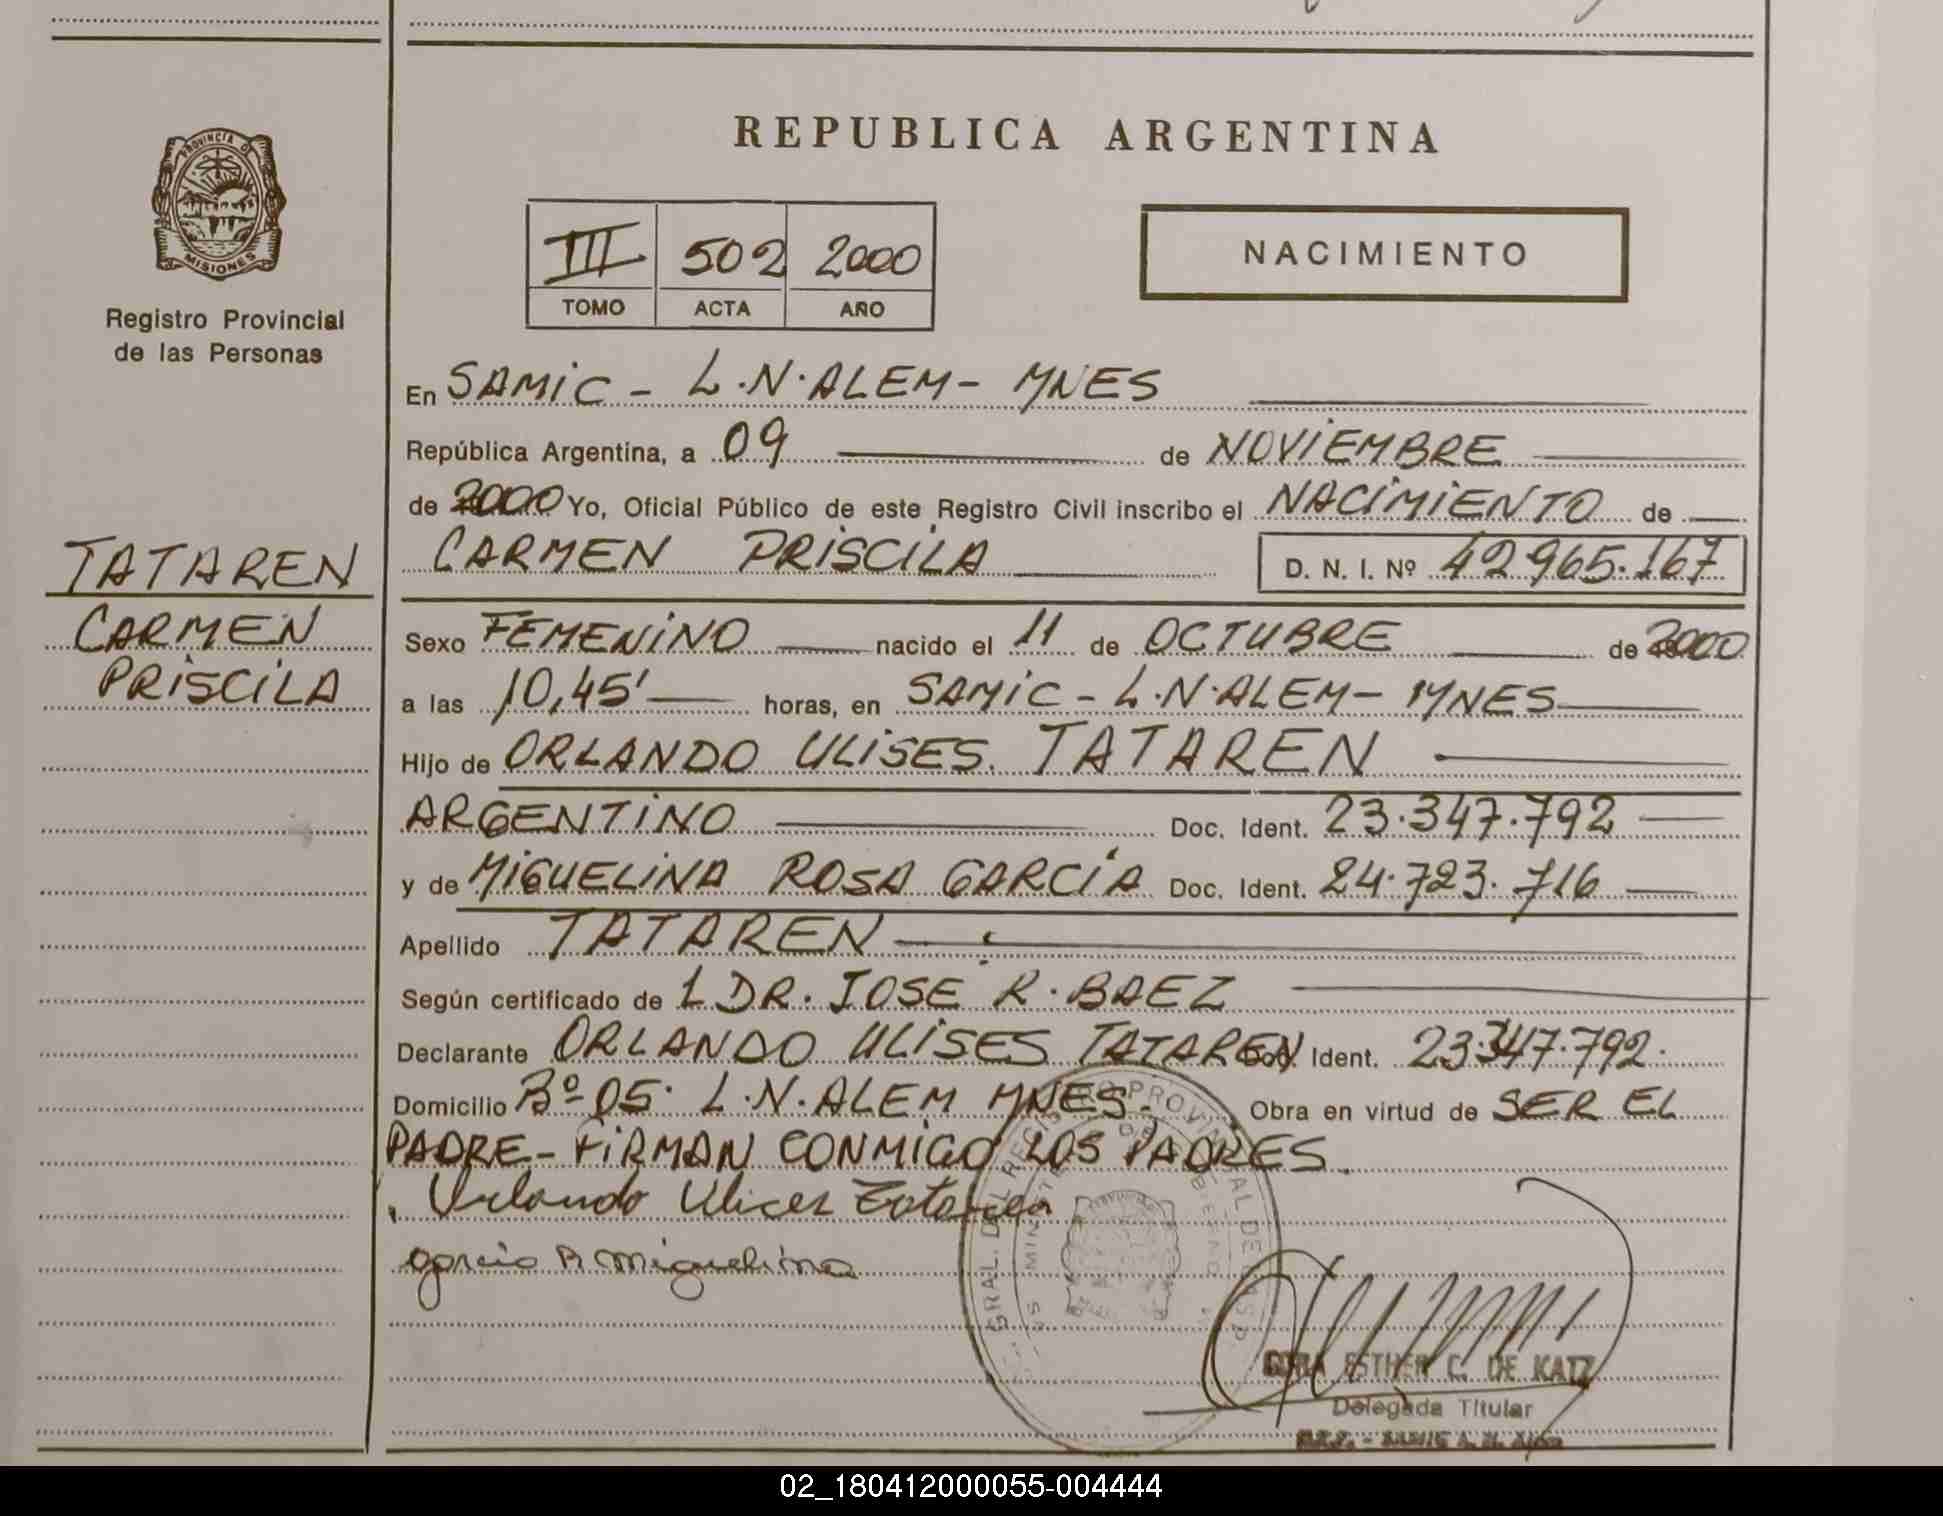 PROVINCIA D
MISIONES
Registro Provincial
de las Personas
TATAREN
CARMEN
PRISCILA
REPUBLICA ARGENTINA
III 502 2000
TOMO ACTA AÑO
NACIMIENTO
En SAMIC - L.N.ALEM - MNES
República Argentina, a 09 de NOVIEMBRE
de 2000 Yo, Oficial Público de este Registro Civil inscribo el NACIMIENTO de
CARMEN PRISCILA D. N. I. Nº 42965.167
Sexo FEMENINO nacido el 11 de OCTUBRE de 2000
a las 10,45' horas, en SAMIC - L.N.ALEM - MNES
Hijo de ORLANDO ULISES TATAREN
ARGENTINO Doc. Ident. 23.347.792
y de MIGUELINA ROSA GARCÍA Doc. Ident. 24.723.716
Apellido TATAREN
Según certificado de L DR. JOSE R. BAEZ
Declarante ORLANDO ULISES TATAREN Doc. Ident. 23.347.792.
Domicilio Bº 05. L.N.ALEM MNES. Obra en virtud de SER EL
PADRE - FIRMAN CONMIGO LOS PADRES.
Orlando Ulices Tataren
Garcia R Miguelina
ESTHER C. DE KATZ
Delegada Titular
02_180412000055-004444